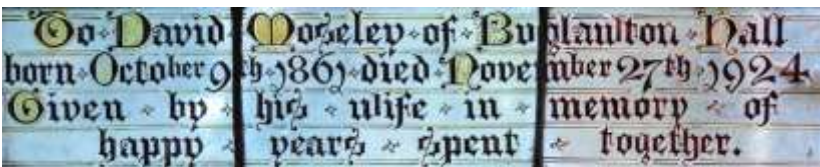 To David Moseley of Buglawton Hall
born October 9th 1861 died November 27th 1924
Given by his wife in memory of
happy years spent together.